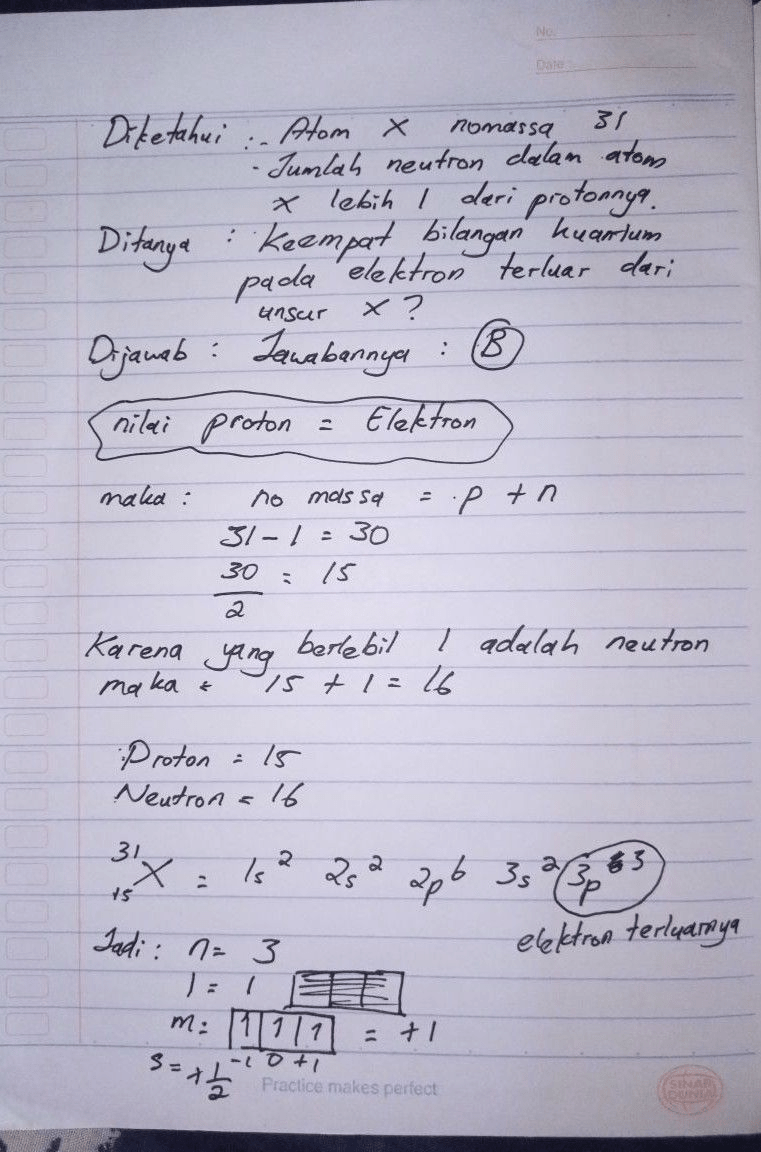 No.
Date
Diketahui : - Atom X nomassa 31
- Jumlah neutron dalam atom
x lebih 1 dari protonnya.
Ditanya : Keempat bilangan kuantum
pada elektron terluar dari
unsur X ?
Dijawab : Jawabannya : B
nilai proton = Elektron
maka : no massa = p + n
31 - 1 = 30
30/2 = 15
Karena yang berlebil 1 adalah neutron
maka = 15 + 1 = 16
Proton = 15
Neutron = 16
³¹₁₅X = 1s² 2s² 2p⁶ 3s² 3p³
elektron terluarnya
Jadi : n = 3
l = 1
m = 1 1 1 = +1
-1 0 +1
s = + 1/2
Practice makes perfect
SINAR DUNIA